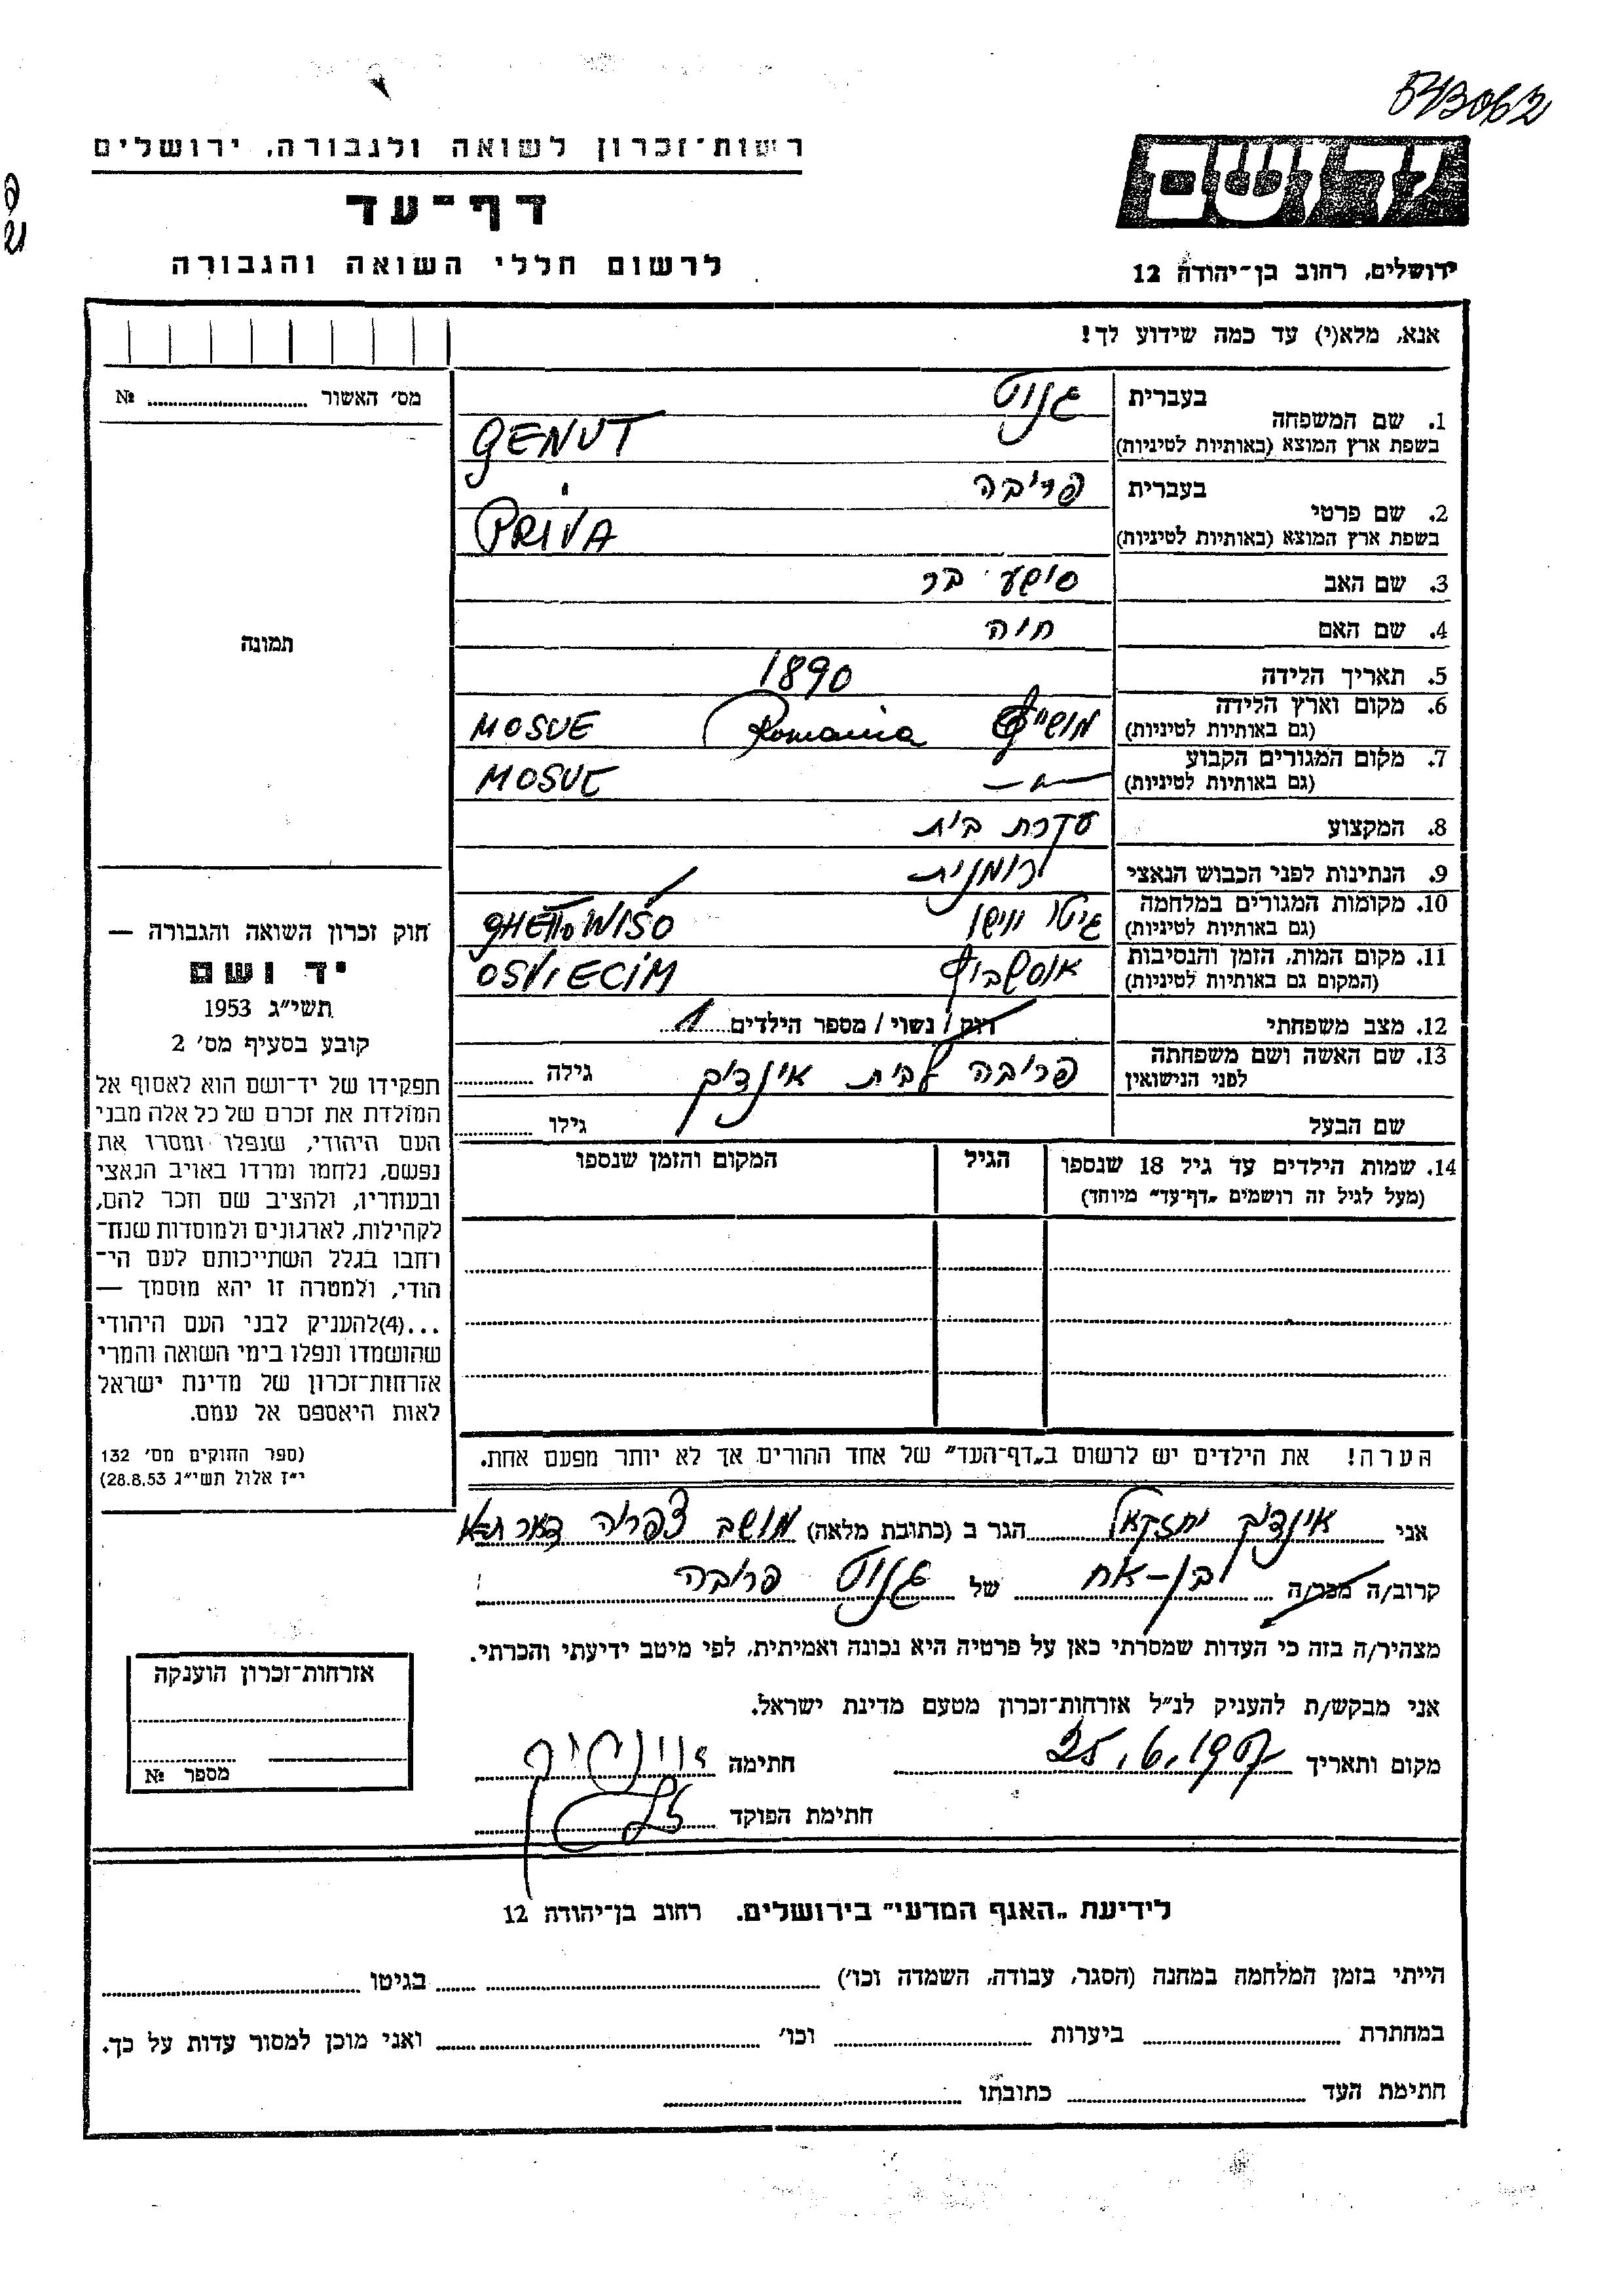 543062
רשות־זכרון לשואה ולגבורה, ירושלים
דף־עד
לרשום חללי השואה והגבורה
יד ושם
ירושלים, רחוב בן־יהודה 12
אנא, מלא(י) עד כמה שידוע לך!
מס׳ האשור № 
תמונה
1. שם המשפחה בעברית גנוט
בשפת ארץ המוצא (באותיות לטיניות) GENUT
2. שם פרטי בעברית פריבה
בשפת ארץ המוצא (באותיות לטיניות) PRIVA
3. שם האב
4. שם האם חוה
5. תאריך הלידה 1890
6. מקום וארץ הלידה (גם באותיות לטיניות) Romania MOSUE
7. מקום המגורים הקבוע (גם באותיות לטיניות) —"— MOSUE
8. המקצוע עקרת בית
9. הנתינות לפני הכבוש הנאצי רומנית
10. מקומות המגורים במלחמה (גם באותיות לטיניות) גיטו ווישו GHETTO WISO
11. מקום המות, הזמן והנסיבות (המקום גם באותיות לטיניות) OSVIECIM
12. מצב משפחתי רוק / נשוי / מספר הילדים 1
13. שם האשה ושם משפחתה לפני הנישואין פריבה לבית אינדיק גילה
שם הבעל גילו
14. שמות הילדים עד גיל 18 שנספו (מעל לגיל זה רושמים „דף־עד״ מיוחד) הגיל המקום והזמן שנספו
הערה! את הילדים יש לרשום ב„דף־העד״ של אחד ההורים אך לא יותר מפעם אחת.
חוק זכרון השואה והגבורה —
יד ושם
תשי״ג 1953
קובע בסעיף מס׳ 2
תפקידו של יד־ושם הוא לאסוף אל
המולדת את זכרם של כל אלה מבני
העם היהודי, שנפלו ומסרו את
נפשם, נלחמו ומרדו באויב הנאצי
ובעוזריו, ולהציב שם וזכר להם,
לקהילות, לארגונים ולמוסדות שנח־
רחבו בגלל השתייכותם לעם הי־
הודי, ולמטרה זו יהא מוסמך —
...(4)להעניק לבני העם היהודי
שהושמדו ונפלו בימי השואה והמרי
אזרחות־זכרון של מדינת ישראל
לאות היאספם אל עמם.
(ספר החוקים מס׳ 132
י״ז אלול תשי״ג 28.8.53)
אני אינדיק יחזקאל הגר ב (כתובת מלאה) מושב צפריה
קרוב/ה מכר/ה בן-אח של גנוט פריבה
מצהיר/ה בזה כי העדות שמסרתי כאן על פרטיה היא נכונה ואמיתית, לפי מיטב ידיעתי והכרתי.
אני מבקש/ת להעניק לנ״ל אזרחות־זכרון מטעם מדינת ישראל.
מקום ותאריך 25.6.1957 חתימה
חתימת הפוקד
אזרחות־זכרון הוענקה
מספר №
לידיעת „האגף המדעי״ בירושלים. רחוב בן־יהודה 12
הייתי בזמן המלחמה במחנה (הסגר, עבודה, השמדה וכו׳) בגיטו
במחתרת ביערות וכו׳ ואני מוכן למסור עדות על כך.
חתימת העד כתובתו